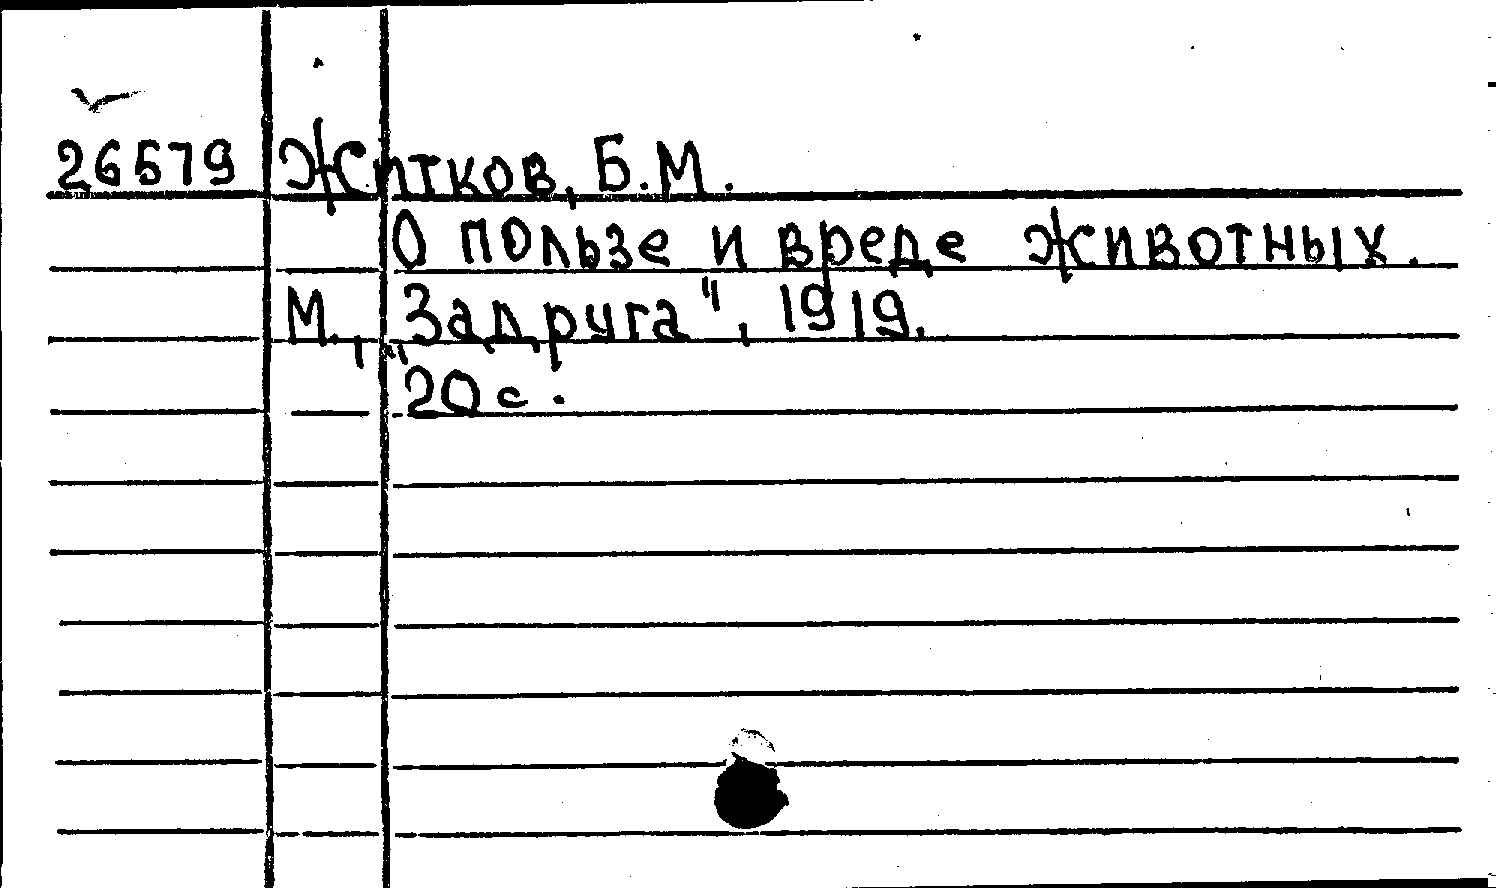 26579 Житков, Б.М.
О пользе и вреде животных.
М., „Задруга", 1919.
20 с.